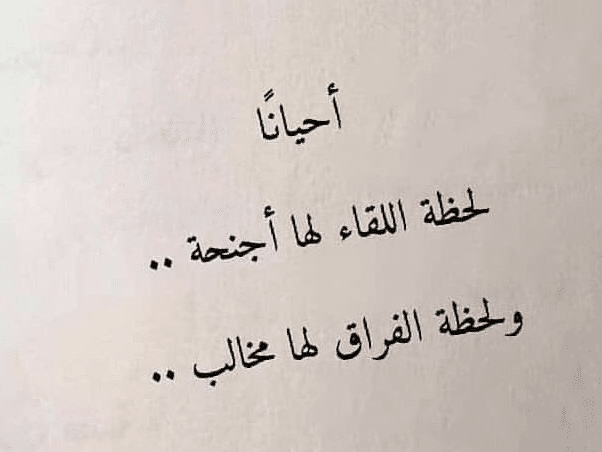 أحيانًا
لحظة اللقاء لها أجنحة ..
ولحظة الفراق لها مخالب ..